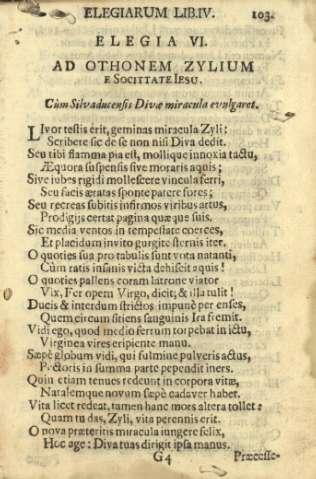 ELEGIARUM LIB.IV. 103.
ELEGIA VI.
AD OTHONEM ZYLIUM
E SOCITTATE IESU.
Cùm Silvaducensis Divæ miracula evulgaret.
LIvor testis erit, geminas miracula Zyli;
Scribere sic de se non nisi Diva dedit.
Seu tibi flamma pia est, mollique innoxia tactu,
Æquora suspensis sive moraris aquis;
Sive jubes rigidi mollescere vincula ferri,
Seu facis æratas sponte patere fores;
Seu recreas subitis infirmos viribus artus,
Prodigijs certat pagina quæque suis.
Sic media ventos in tempestate coërces,
Et placidum invito gurgite sternis iter.
O quoties sua pro tabulis sunt vota natanti,
Cùm ratis insanis victa dehiscit aquis!
O quoties pallens coram latrone viator
Vix, Fer opem Virgo, dicit; & illa tulit!
Ducis & interdum strictos impunè per enses,
Quem circum sitiens sanguinis Ira fremit.
Vidi ego, quod medio ferrum torpebat in ictu,
Virginea vires eripiente manu.
Sæpè globum vidi, qui fulmine pulveris actus,
Pectoris in summa parte pependit iners.
Quin etiam tenues redeunt in corpora vitæ,
Natalemque novum sæpè cadaver habet.
Vita licet redeat, tamen hanc mors altera tollet:
Quam tu das, Zyli, vita perennis erit.
O nova præteritis miracula jungere felix,
Hoc age: Diva tuas dirigit ipsa manus.
G4 Præcesse-